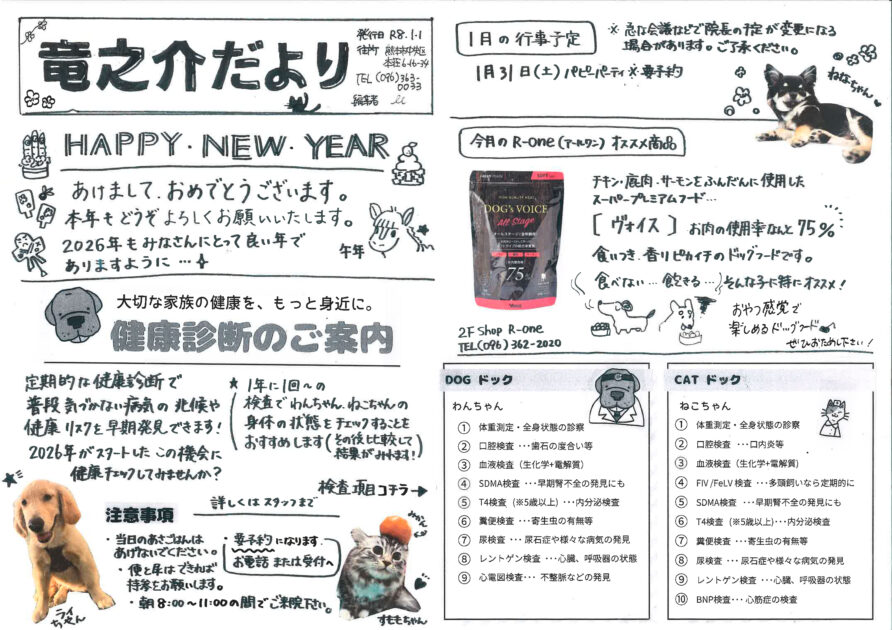 竜之介だより
発行日 R8.1.1
住所 熊本市中央区
本荘6-16-34
TEL (096)363-
0033
編集者
HAPPY・NEW・YEAR
あけまして、おめでとうございます。
本年もどうぞよろしくお願いいたします。
2026年もみなさんにとって良い年で
ありますように…
午年
大切な家族の健康を、もっと身近に。
健康診断のご案内
定期的な健康診断で
普段気づかない病気の兆候や
健康リスクを早期発見できます!
2026年がスタートしたこの機会に
健康チェックしてみませんか?
★1年に1回〜の
検査でわんちゃん、ねこちゃんの
身体の状態をチェックすることを
おすすめします(その後比較して
結果がみれます!)
検査項目コチラ→
詳しくはスタッフまで
注意事項
・当日のあさごはんは
あげないでください。
・便と尿はできれば
持参をお願いします。
・朝8:00〜11:00の間でご来院下さい。
・要予約になります。
お電話または受付へ
ライちゃん
みかん
すももちゃん
1月の行事予定
※急な会議などで院長の予定が変更になる
場合があります。ご了承ください。
1月31日(土)パピーパーティ※要予約
ねなちゃん
今月のR-one(アールワン)オススメ商品
DOG's VOICE
All Stage
75%
チキン・鹿肉・サーモンをふんだんに使用した
スーパープレミアムフード…
[ヴォイス]お肉の使用率なんと75%
食いつき、香りピカイチのドッグフードです。
食べない…飽きる…そんな子に特にオススメ!
おやつ感覚で
楽しめるドッグフード
ぜひおためし下さい!
2F Shop R-one
TEL(096)362-2020
DOG ドック
わんちゃん
① 体重測定・全身状態の診察
② 口腔検査 ・・・歯石の度合い等
③ 血液検査(生化学+電解質)
④ SDMA検査 ・・・早期腎不全の発見にも
⑤ T4検査 (※5歳以上)・・・内分泌検査
⑥ 糞便検査 ・・・寄生虫の有無等
⑦ 尿検査 ・・・尿石症や様々な病気の発見
⑧ レントゲン検査 ・・・心臓、呼吸器の状態
⑨ 心電図検査・・・ 不整脈などの発見
CAT ドック
ねこちゃん
① 体重測定・全身状態の診察
② 口腔検査 ・・・口内炎等
③ 血液検査(生化学+電解質)
④ FIV/FeLV検査 ・・・多頭飼いなら定期的に
⑤ SDMA検査 ・・・早期腎不全の発見にも
⑥ T4検査 (※5歳以上)・・・内分泌検査
⑦ 糞便検査 ・・・寄生虫の有無等
⑧ 尿検査 ・・・尿石症や様々な病気の発見
⑨ レントゲン検査 ・・・心臓、呼吸器の状態
⑩ BNP検査・・・心筋症の検査